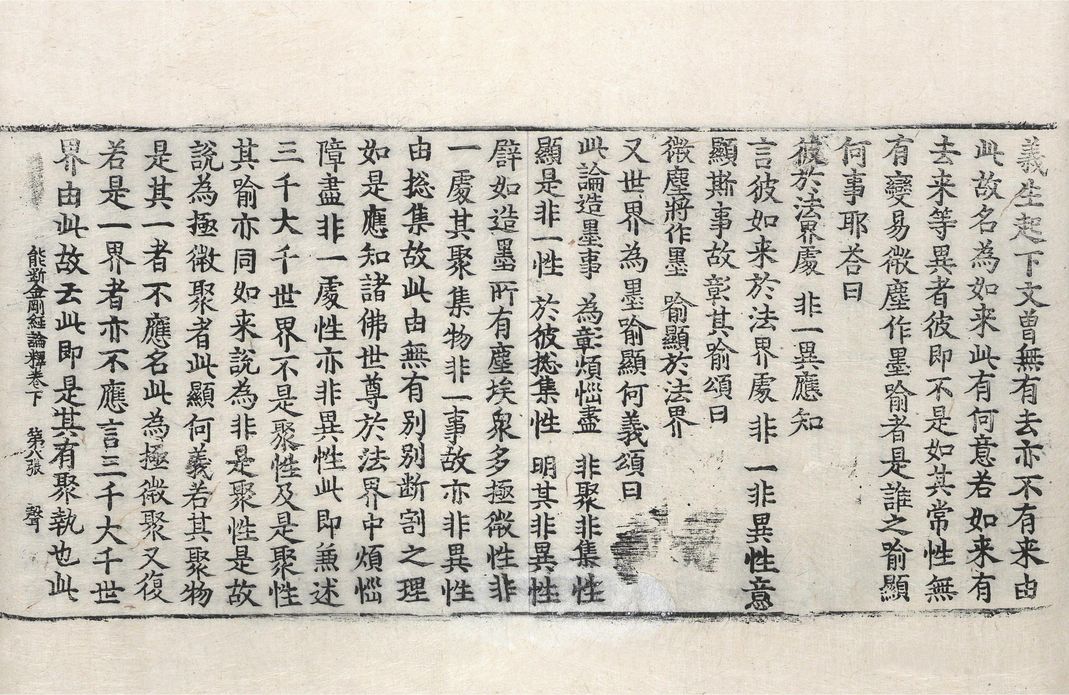 義生起下文曾無有去亦不有来由
此故名為如来此有何意若如来有
去来等異者彼即不是如其常性無
有變易微塵作墨喻者是誰之喻顯
何事耶荅曰
彼於法界處　非一異應知
言彼如来於法界處非一非異性意
顯斯事故彰其喻頌曰
微塵將作墨　喻顯於法界
又世界為墨喻顯何義頌曰
此論造墨事　為彰煩惱盡　非聚非集性
顯是非一性　於彼捴集性　明其非異性
譬如造墨所有塵埃衆多極微性非
一處其聚集物非一事故亦非異性
由捴集故此由無有別別断割之理
如是應知諸佛世尊於法界中煩惱
障盡非一處性亦非異性此即兼述
三千大千世界不是聚性及是聚性
其喻亦同如来說為非是聚性是故
說為極微聚者此顯何義若其聚物
是其一者不應名此為極微聚又復
若是一界者亦不應言三千大千世
界由此故云此即是其有聚執也此
能断金剛経論釋卷下　第八張　聲